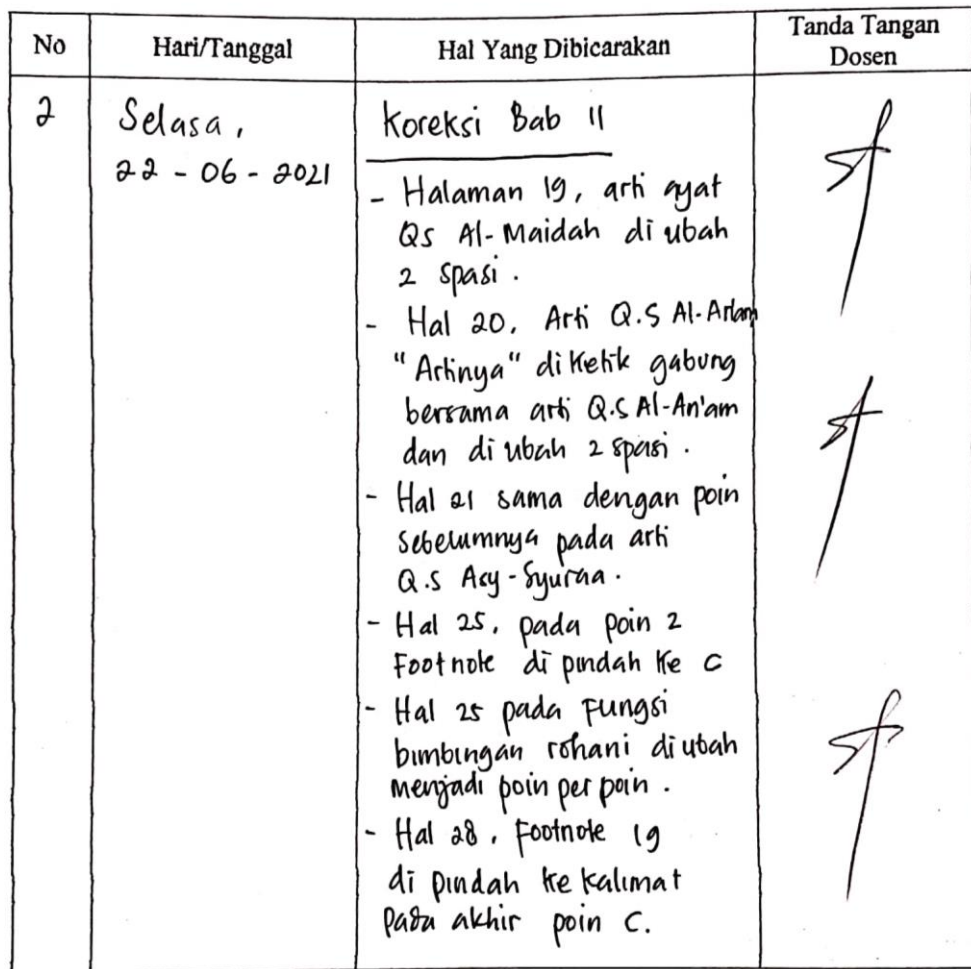 No
Hari/Tanggal
Hal Yang Dibicarakan
Tanda Tangan
Dosen
2
Selasa,
22 - 06 - 2021
Koreksi Bab II
- Halaman 19, arti ayat
Qs Al-Maidah di ubah
2 spasi.
- Hal 20. Arti Q.S Al-An'am
"Artinya" di Ketik gabung
bersama arti Q.S Al-An'am
dan di ubah 2 spasi.
- Hal 21 sama dengan poin
sebelumnya pada arti
Q.S Asy-Syuraa.
- Hal 25. pada poin 2
Footnote di pindah Ke C
- Hal 25 pada Fungsi
bimbingan rohani di ubah
menjadi poin per poin.
- Hal 28. Footnote 19
di pindah ke kalimat
pada akhir poin C.